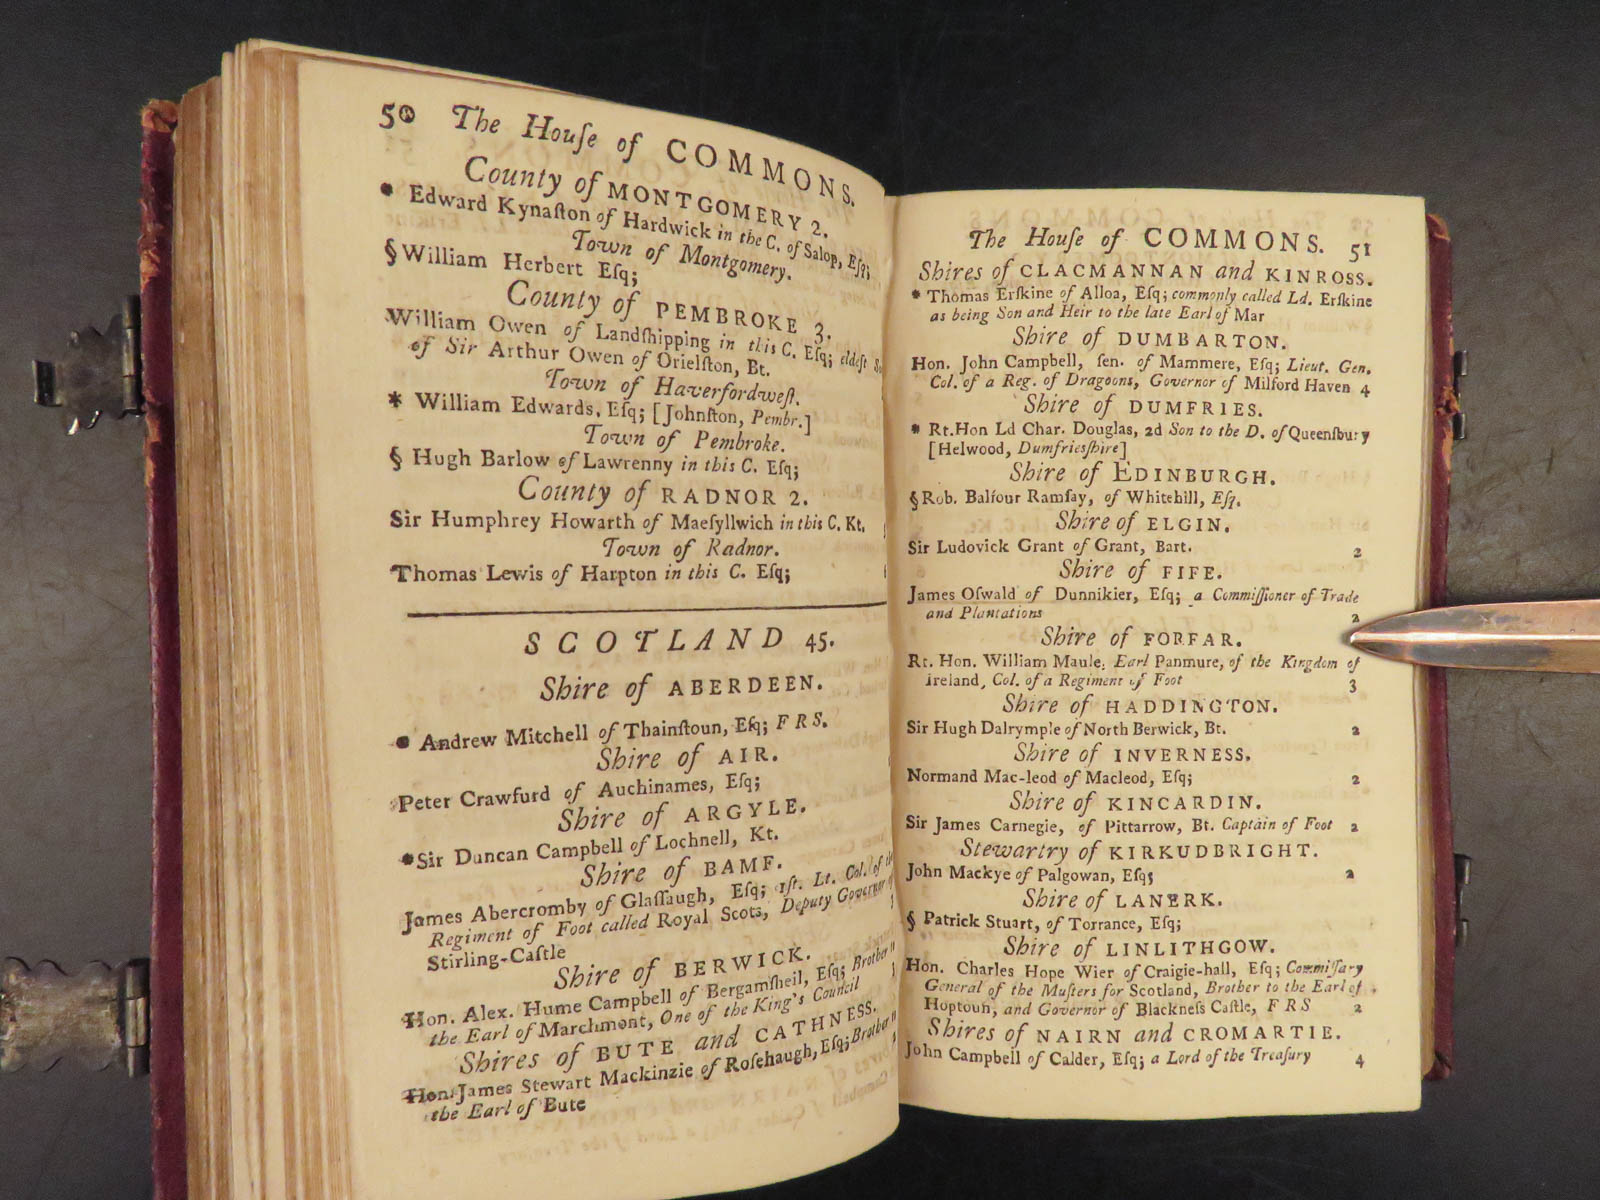 50 The Houſe of COMMONS.
County of MONTGOMERY 2.
* Edward Kynaſton of Hardwick in the C. of Salop, Eſq;
Town of Montgomery.
§ William Herbert Eſq;
County of PEMBROKE 3.
William Owen of Landſhipping in this C. Eſq; eldeſt
of Sir Arthur Owen of Orielſton, Bt.
Town of Haverfordweſt.
* William Edwards, Eſq; [Johnſton, Pembr.]
Town of Pembroke.
§ Hugh Barlow of Lawrenny in this C. Eſq;
County of RADNOR 2.
Sir Humphrey Howarth of Maeſyllwich in this C. Kt.
Town of Radnor.
Thomas Lewis of Harpton in this C. Eſq;
SCOTLAND 45.
Shire of ABERDEEN.
* Andrew Mitchell of Thainſtoun, Eſq; F R S.
Shire of AIR.
Peter Crawfurd of Auchinames, Eſq;
Shire of ARGYLE.
* Sir Duncan Campbell of Lochnell, Kt.
Shire of BAMF.
James Abercromby of Glaſſaugh, Eſq; 1ſt. Lt. Col. of the
Regiment of Foot called Royal Scots, Deputy Governor of
Stirling-Caſtle
Shire of BERWICK.
Hon. Alex. Hume Campbell of Bergamſheil, Eſq; Brother
the Earl of Marchmont, One of the King's Council
Shires of BUTE and CATHNESS.
Hon. James Stewart Mackinzie of Roſehaugh, Eſq; Brother
the Earl of Bute
The Houſe of COMMONS. 51
Shires of CLACMANNAN and KINROSS.
* Thomas Erſkine of Alloa, Eſq; commonly called Ld. Erſkine
as being Son and Heir to the late Earl of Mar
Shire of DUMBARTON.
Hon. John Campbell, ſen. of Mammere, Eſq; Lieut. Gen.
Col. of a Reg. of Dragoons, Governor of Milford Haven 4
Shire of DUMFRIES.
* Rt. Hon Ld Char. Douglas, 2d Son to the D. of Queenſbury
[Helwood, Dumfriesſhire]
Shire of EDINBURGH.
§ Rob. Balfour Ramſay, of Whitehill, Eſq.
Shire of ELGIN.
Sir Ludovick Grant of Grant, Bart. 2
Shire of FIFE.
James Oſwald of Dunnikier, Eſq; a Commiſſioner of Trade
and Plantations 2
Shire of FORFAR.
Rt. Hon. William Maule, Earl Panmure, of the Kingdom of
Ireland, Col. of a Regiment of Foot 3
Shire of HADDINGTON.
Sir Hugh Dalrymple of North Berwick, Bt. 2
Shire of INVERNESS.
Normand Mac-leod of Macleod, Eſq; 2
Shire of KINCARDIN.
Sir James Carnegie, of Pittarrow, Bt. Captain of Foot 2
Stewartry of KIRKUDBRIGHT.
John Mackye of Palgowan, Eſq; 2
Shire of LANERK.
§ Patrick Stuart, of Torrance, Eſq;
Shire of LINLITHGOW.
Hon. Charles Hope Wier of Craigie-hall, Eſq; Commiſſary
General of the Muſters for Scotland, Brother to the Earl of
Hoptoun, and Governor of Blackneſs Caſtle, F R S 2
Shires of NAIRN and CROMARTIE.
John Campbell of Calder, Eſq; a Lord of the Treaſury 4